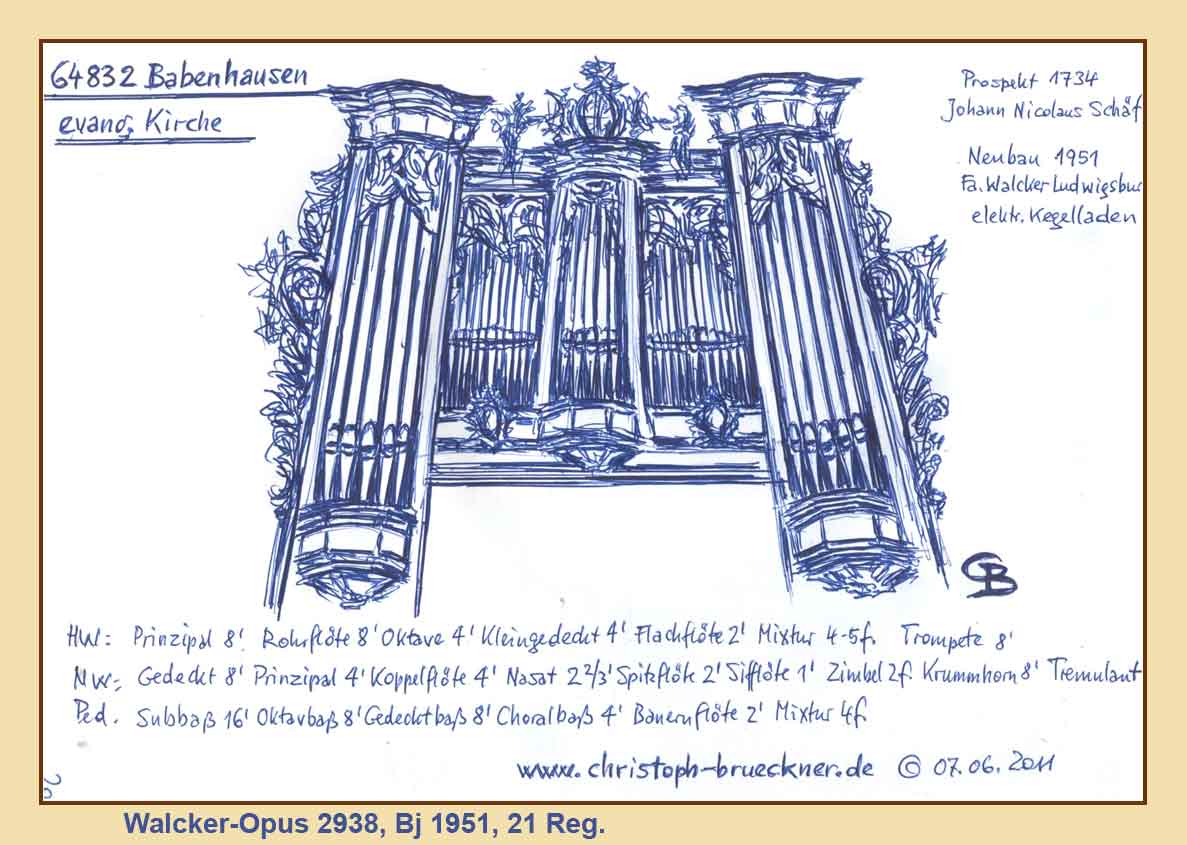 64832 Babenhausen
evang. Kirche
Prospekt 1734
Johann Nicolaus Schäf
Neubau 1951
Fa. Walcker Ludwigsbur
elektr. Kegelladen
CB
HW: Prinzipal 8' Rohrflöte 8' Oktave 4' Kleingedeckt 4' Flachflöte 2' Mixtur 4-5f. Trompete 8'
NW: Gedeckt 8' Prinzipal 4' Koppelflöte 4' Nasat 2 2/3' Spitzflöte 2' Sifflöte 1' Zimbel 2f. Krummhorn 8' Tremulant
Ped. Subbaß 16' Oktavbaß 8' Gedecktbaß 8' Choralbaß 4' Bauernflöte 2' Mixtur 4f.
www.christoph-brueckner.de © 07.06.2011
Walcker-Opus 2938, Bj 1951, 21 Reg.